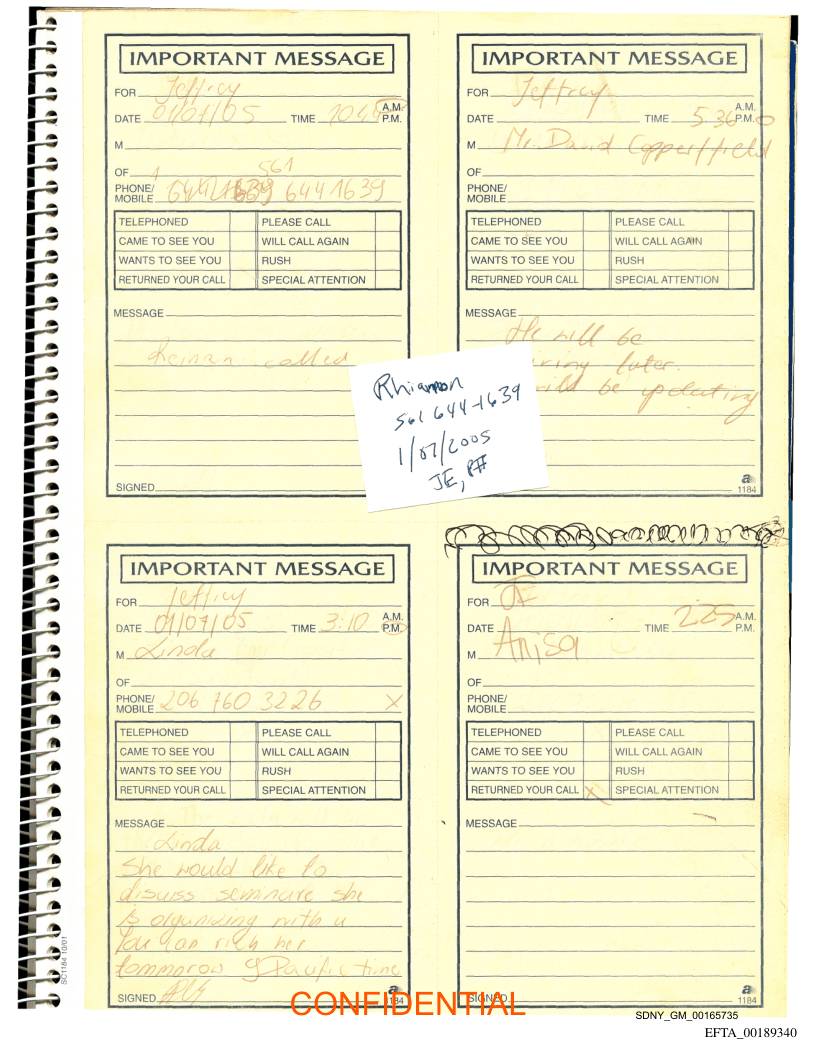 IMPORTANT MESSAGE
FOR Jeffrey
DATE 01/07/05 TIME A.M. P.M.
M
OF 561
PHONE/ MOBILE 644 1639
TELEPHONED PLEASE CALL
CAME TO SEE YOU WILL CALL AGAIN
WANTS TO SEE YOU RUSH
RETURNED YOUR CALL SPECIAL ATTENTION
MESSAGE
called
SIGNED
IMPORTANT MESSAGE
FOR Jeffrey
DATE TIME 5.36 A.M. P.M.
M Mr. David Copperfield
OF
PHONE/ MOBILE
TELEPHONED PLEASE CALL
CAME TO SEE YOU WILL CALL AGAIN
WANTS TO SEE YOU RUSH
RETURNED YOUR CALL SPECIAL ATTENTION
MESSAGE
He will be
later.
be updating
a
1184
Rhiannon
561 644-1639
1/07/2005
JE,
IMPORTANT MESSAGE
FOR Jeffrey
DATE 01/07/05 TIME 3:10 A.M. P.M.
M Linda
OF
PHONE/ MOBILE 206 760 3226 X
TELEPHONED PLEASE CALL
CAME TO SEE YOU WILL CALL AGAIN
WANTS TO SEE YOU RUSH
RETURNED YOUR CALL SPECIAL ATTENTION
MESSAGE
Linda
She would like to
disuiss seminare she
is olganizing with u
You can rich her
tommorow 9 Paufic time
SIGNED
a
1184
IMPORTANT MESSAGE
FOR JE
DATE TIME 2:25 A.M. P.M.
M Anisa
OF
PHONE/ MOBILE
TELEPHONED PLEASE CALL
CAME TO SEE YOU WILL CALL AGAIN
WANTS TO SEE YOU RUSH
RETURNED YOUR CALL X SPECIAL ATTENTION
MESSAGE
SIGNED
a
1184
SC1184 10/01
CONFIDENTIAL
SDNY_GM_00165735
EFTA_00189340